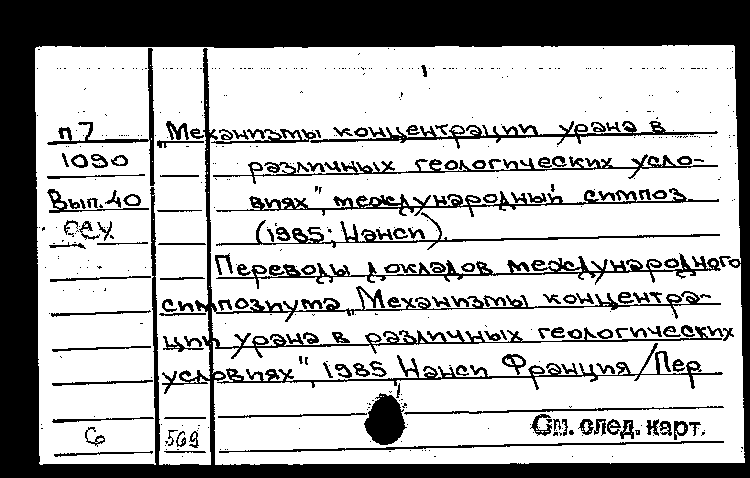 п7 „Механизмы концентрации урана в
1090 различных геологических усло-
Вып.40 виях", международный симпоз
(1985; Нанси).
Переводы докладов международного
симпозиума „Механизмы концентра-
ции урана в различных геологических
условиях", 1985, Нанси Франция / Пер
См. след. карт.